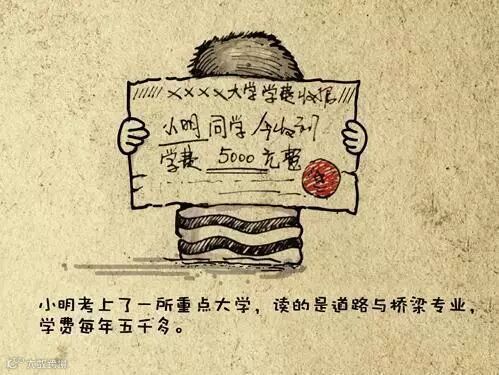 ××××大学学费收据
小明同学今收到
学费 5000 元整
小明考上了一所重点大学，读的是道路与桥梁专业，
学费每年五千多。